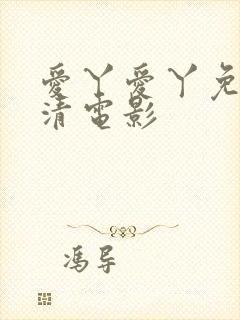 愛丫愛丫免
清電影
馮导